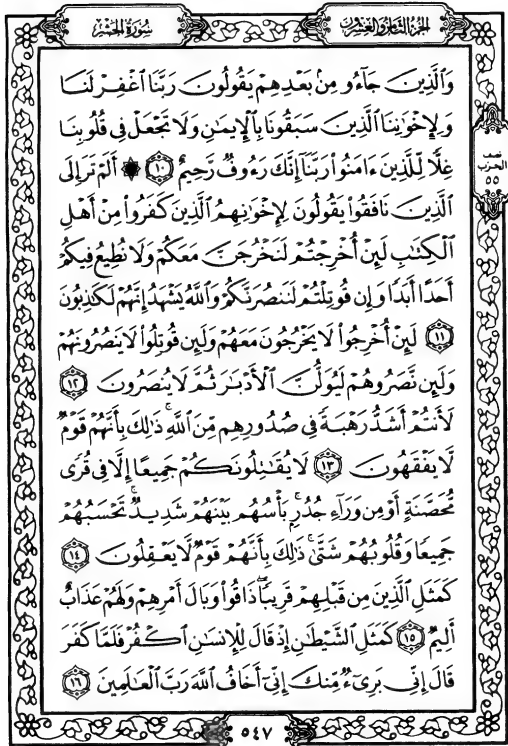 الجزء الثامن والعشرون
سورة الحشر
وَٱلَّذِينَ جَآءُو مِنۢ بَعۡدِهِمۡ يَقُولُونَ رَبَّنَا ٱغۡفِرۡ لَنَا
وَلِإِخۡوَٰنِنَا ٱلَّذِينَ سَبَقُونَا بِٱلۡإِيمَٰنِ وَلَا تَجۡعَلۡ فِي قُلُوبِنَا
غِلّٗا لِّلَّذِينَ ءَامَنُواْ رَبَّنَآ إِنَّكَ رَءُوفٞ رَّحِيمٌ ١٠ ۞ أَلَمۡ تَرَ إِلَى
نصف
الحزب
٥٥
ٱلَّذِينَ نَافَقُواْ يَقُولُونَ لِإِخۡوَٰنِهِمُ ٱلَّذِينَ كَفَرُواْ مِنۡ أَهۡلِ
ٱلۡكِتَٰبِ لَئِنۡ أُخۡرِجۡتُمۡ لَنَخۡرُجَنَّ مَعَكُمۡ وَلَا نُطِيعُ فِيكُمۡ
أَحَدًا أَبَدٗا وَإِن قُوتِلۡتُمۡ لَنَنصُرَنَّكُمۡ وَٱللَّهُ يَشۡهَدُ إِنَّهُمۡ لَكَٰذِبُونَ
١١ لَئِنۡ أُخۡرِجُواْ لَا يَخۡرُجُونَ مَعَهُمۡ وَلَئِن قُوتِلُواْ لَا يَنصُرُونَهُمۡ
وَلَئِن نَّصَرُوهُمۡ لَيُوَلُّنَّ ٱلۡأَدۡبَٰرَ ثُمَّ لَا يُنصَرُونَ ١٢
لَأَنتُمۡ أَشَدُّ رَهۡبَةٗ فِي صُدُورِهِم مِّنَ ٱللَّهِۚ ذَٰلِكَ بِأَنَّهُمۡ قَوۡمٞ
لَّا يَفۡقَهُونَ ١٣ لَا يُقَٰتِلُونَكُمۡ جَمِيعًا إِلَّا فِي قُرٗى
مُّحَصَّنَةٍ أَوۡ مِن وَرَآءِ جُدُرِۭۚ بَأۡسُهُم بَيۡنَهُمۡ شَدِيدٞۚ تَحۡسَبُهُمۡ
جَمِيعٗا وَقُلُوبُهُمۡ شَتَّىٰۚ ذَٰلِكَ بِأَنَّهُمۡ قَوۡمٞ لَّا يَعۡقِلُونَ ١٤
كَمَثَلِ ٱلَّذِينَ مِن قَبۡلِهِمۡ قَرِيبٗاۖ ذَاقُواْ وَبَالَ أَمۡرِهِمۡ وَلَهُمۡ عَذَابٌ
أَلِيمٞ ١٥ كَمَثَلِ ٱلشَّيۡطَٰنِ إِذۡ قَالَ لِلۡإِنسَٰنِ ٱكۡفُرۡ فَلَمَّا كَفَرَ
قَالَ إِنِّي بَرِيٓءٞ مِّنكَ إِنِّيٓ أَخَافُ ٱللَّهَ رَبَّ ٱلۡعَٰلَمِينَ ١٦
٥٤٧